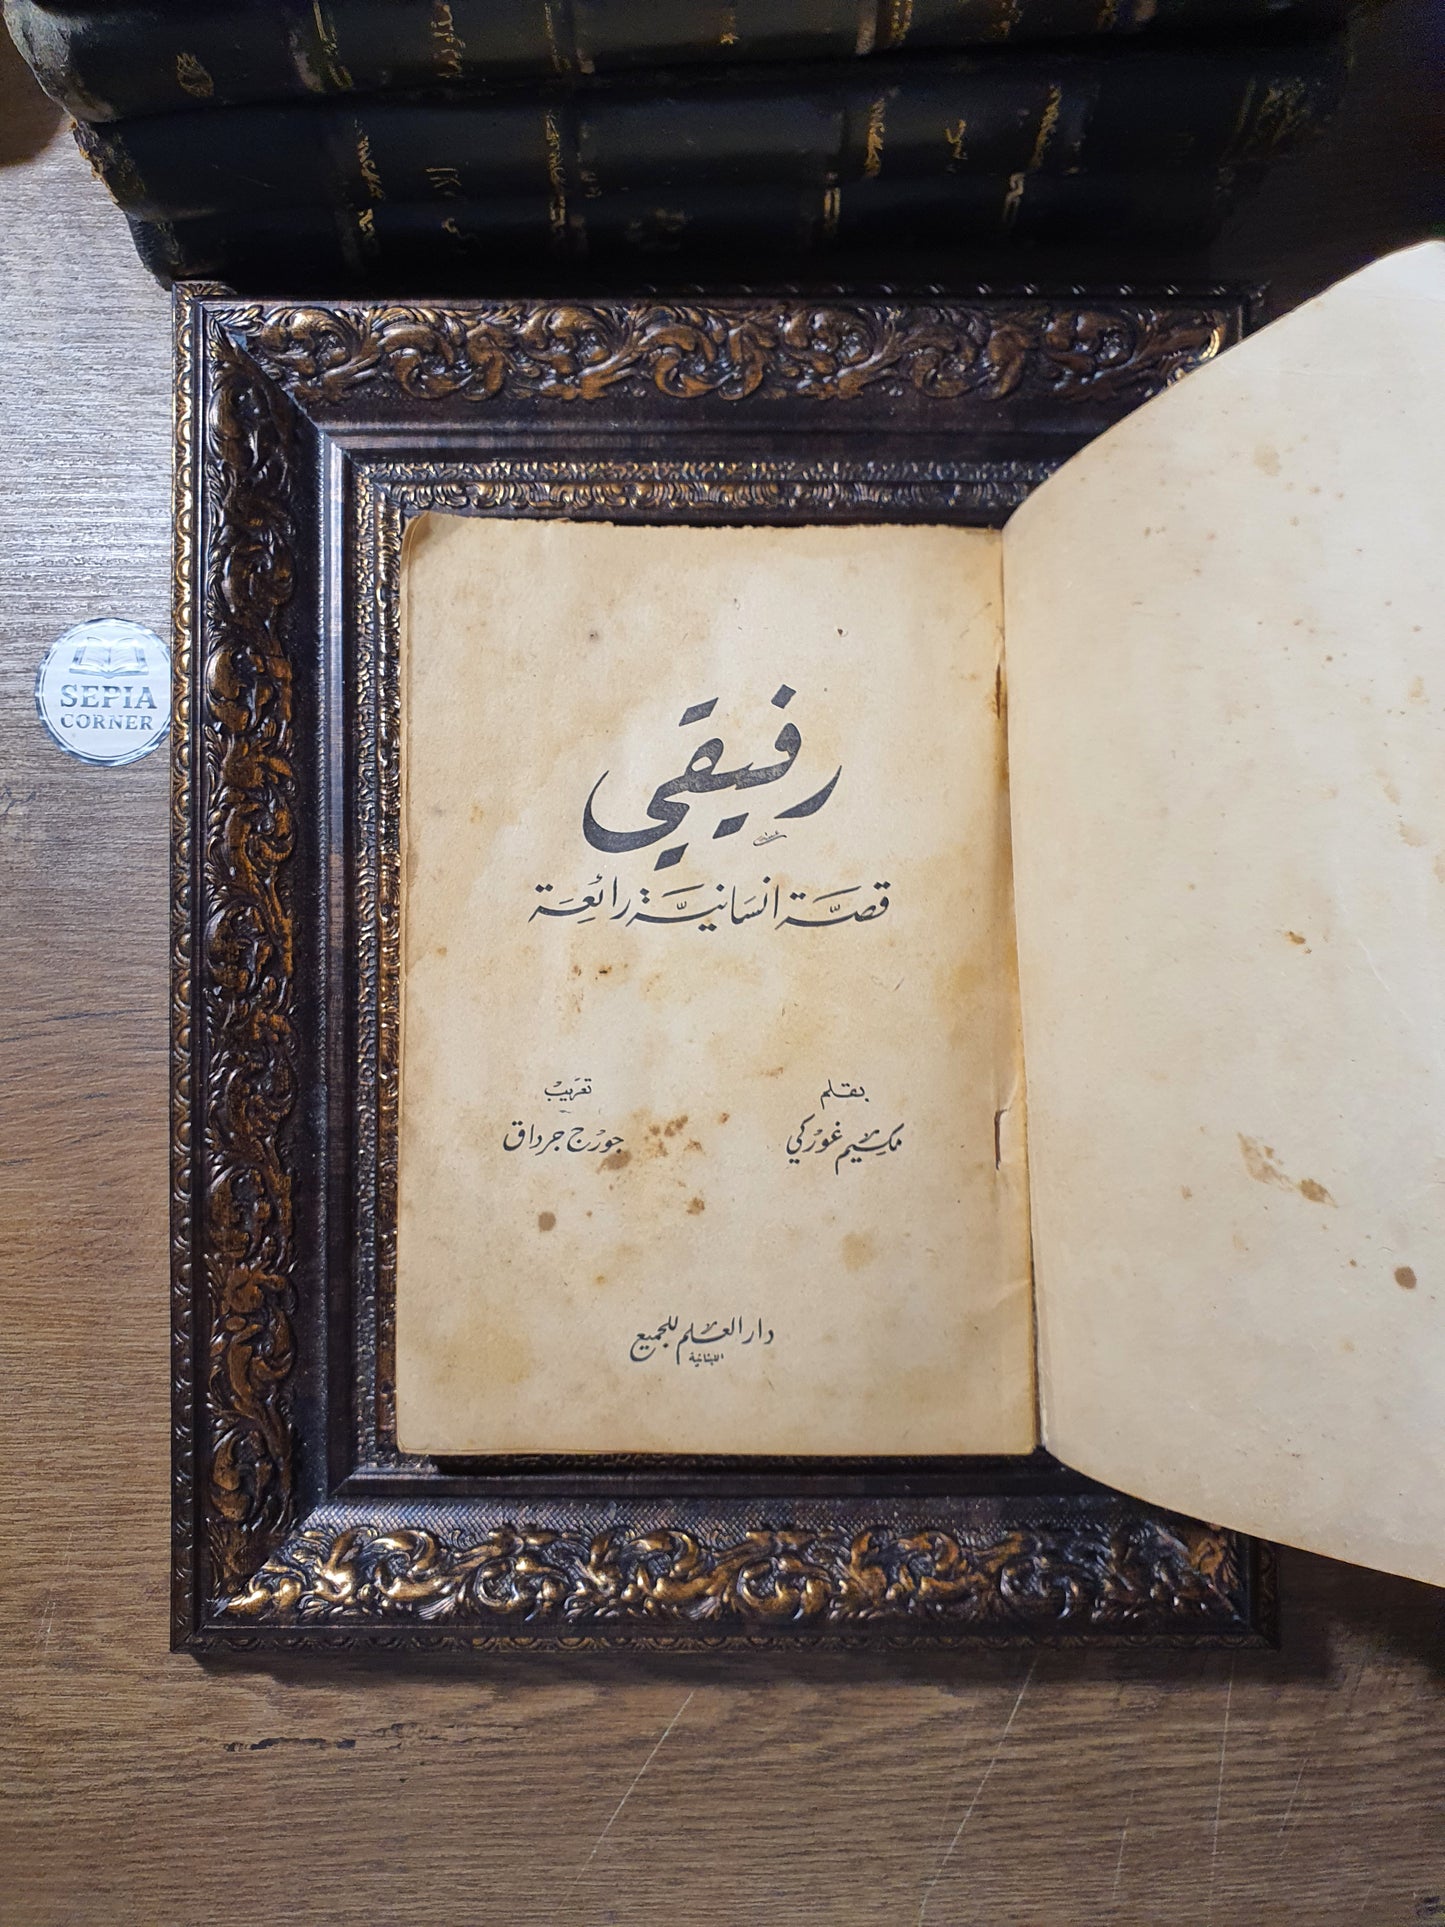 SEPIA
CORNER
رفيقي
قصّة انسَانيَّة رائِعة
بقلم
مكسيم غوركي
تعريب
جورج جرداق
دار العلم للجميع
اللبنانية